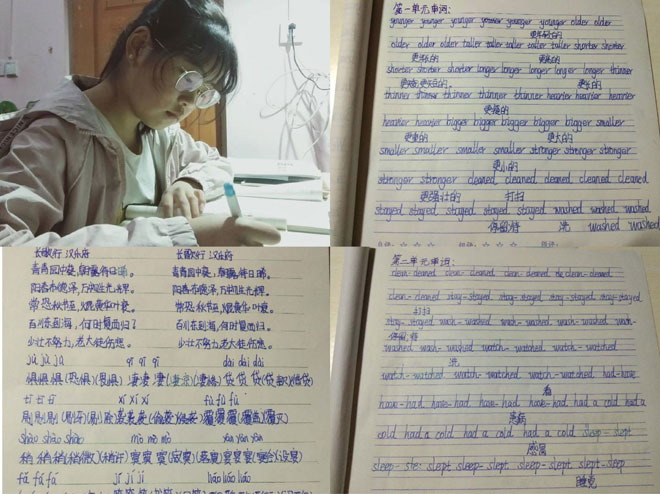 第一单元单词:
younger younger younger younger younger younger older older
更年轻的
older older older taller taller taller taller shorter shorter
更年长的 更高的
shorter shorter shorter longer longer longer longer longer thinner
更长的
thinner thinner thinner thinner thinner heavier heavier heavier
更瘦的
heavier heavier bigger bigger bigger bigger bigger smaller
更重的 更大的
smaller smaller smaller smaller stronger stronger stronger
更小的
stronger stronger cleaned cleaned cleaned cleaned cleaned
更强壮的 打扫
stayed stayed stayed stayed stayed washed washed washed
停留;待 洗 washed washed
长歌行 汉乐府 长歌行 汉乐府
青青园中葵,朝露待日晞。 青青园中葵,朝露待日晞。
阳春布德泽,万物生光辉。 阳春布德泽,万物生光辉。
常恐秋节至,焜黄华叶衰。 常恐秋节至,焜黄华叶衰。
百川东到海,何时复西归? 百川东到海,何时复西归?
少壮不努力,老大徒伤悲。 少壮不努力,老大徒伤悲。
jù jù jù qī qī qī dài dài dài
惧惧惧(恐惧) 凄凄凄(凄凉) 贷贷贷
tì tì tì xí xí xí fù fù fù
剔剔剔(剔牙) 袭袭袭(偷袭) 覆覆覆(覆盖)(覆灭)
shāo shāo shāo mò mò mò yàn yàn yàn
稍稍稍(稍微)(稍许) 寞寞寞(寂寞) 宴宴宴(宴会)(设宴)
jí jí jí liáo liáo liáo
第二单元单词:
clean-cleaned clean-cleaned clean-cleaned clean-cleaned
clean-cleaned stay-stayed stay-stayed stay-stayed stay-stayed
打扫
stay-stayed wash-washed wash-washed wash-washed wash-
停留;待
washed wash-washed watch-watched watch-watched
洗
watch-watched watch-watched watch-watched had-have
看
have-had have-had have-had have-had had a cold had a
患病
cold had a cold had a cold had a cold sleep-slept
感冒
sleep-slept sleep-slept sleep-slept sleep-slept
睡觉